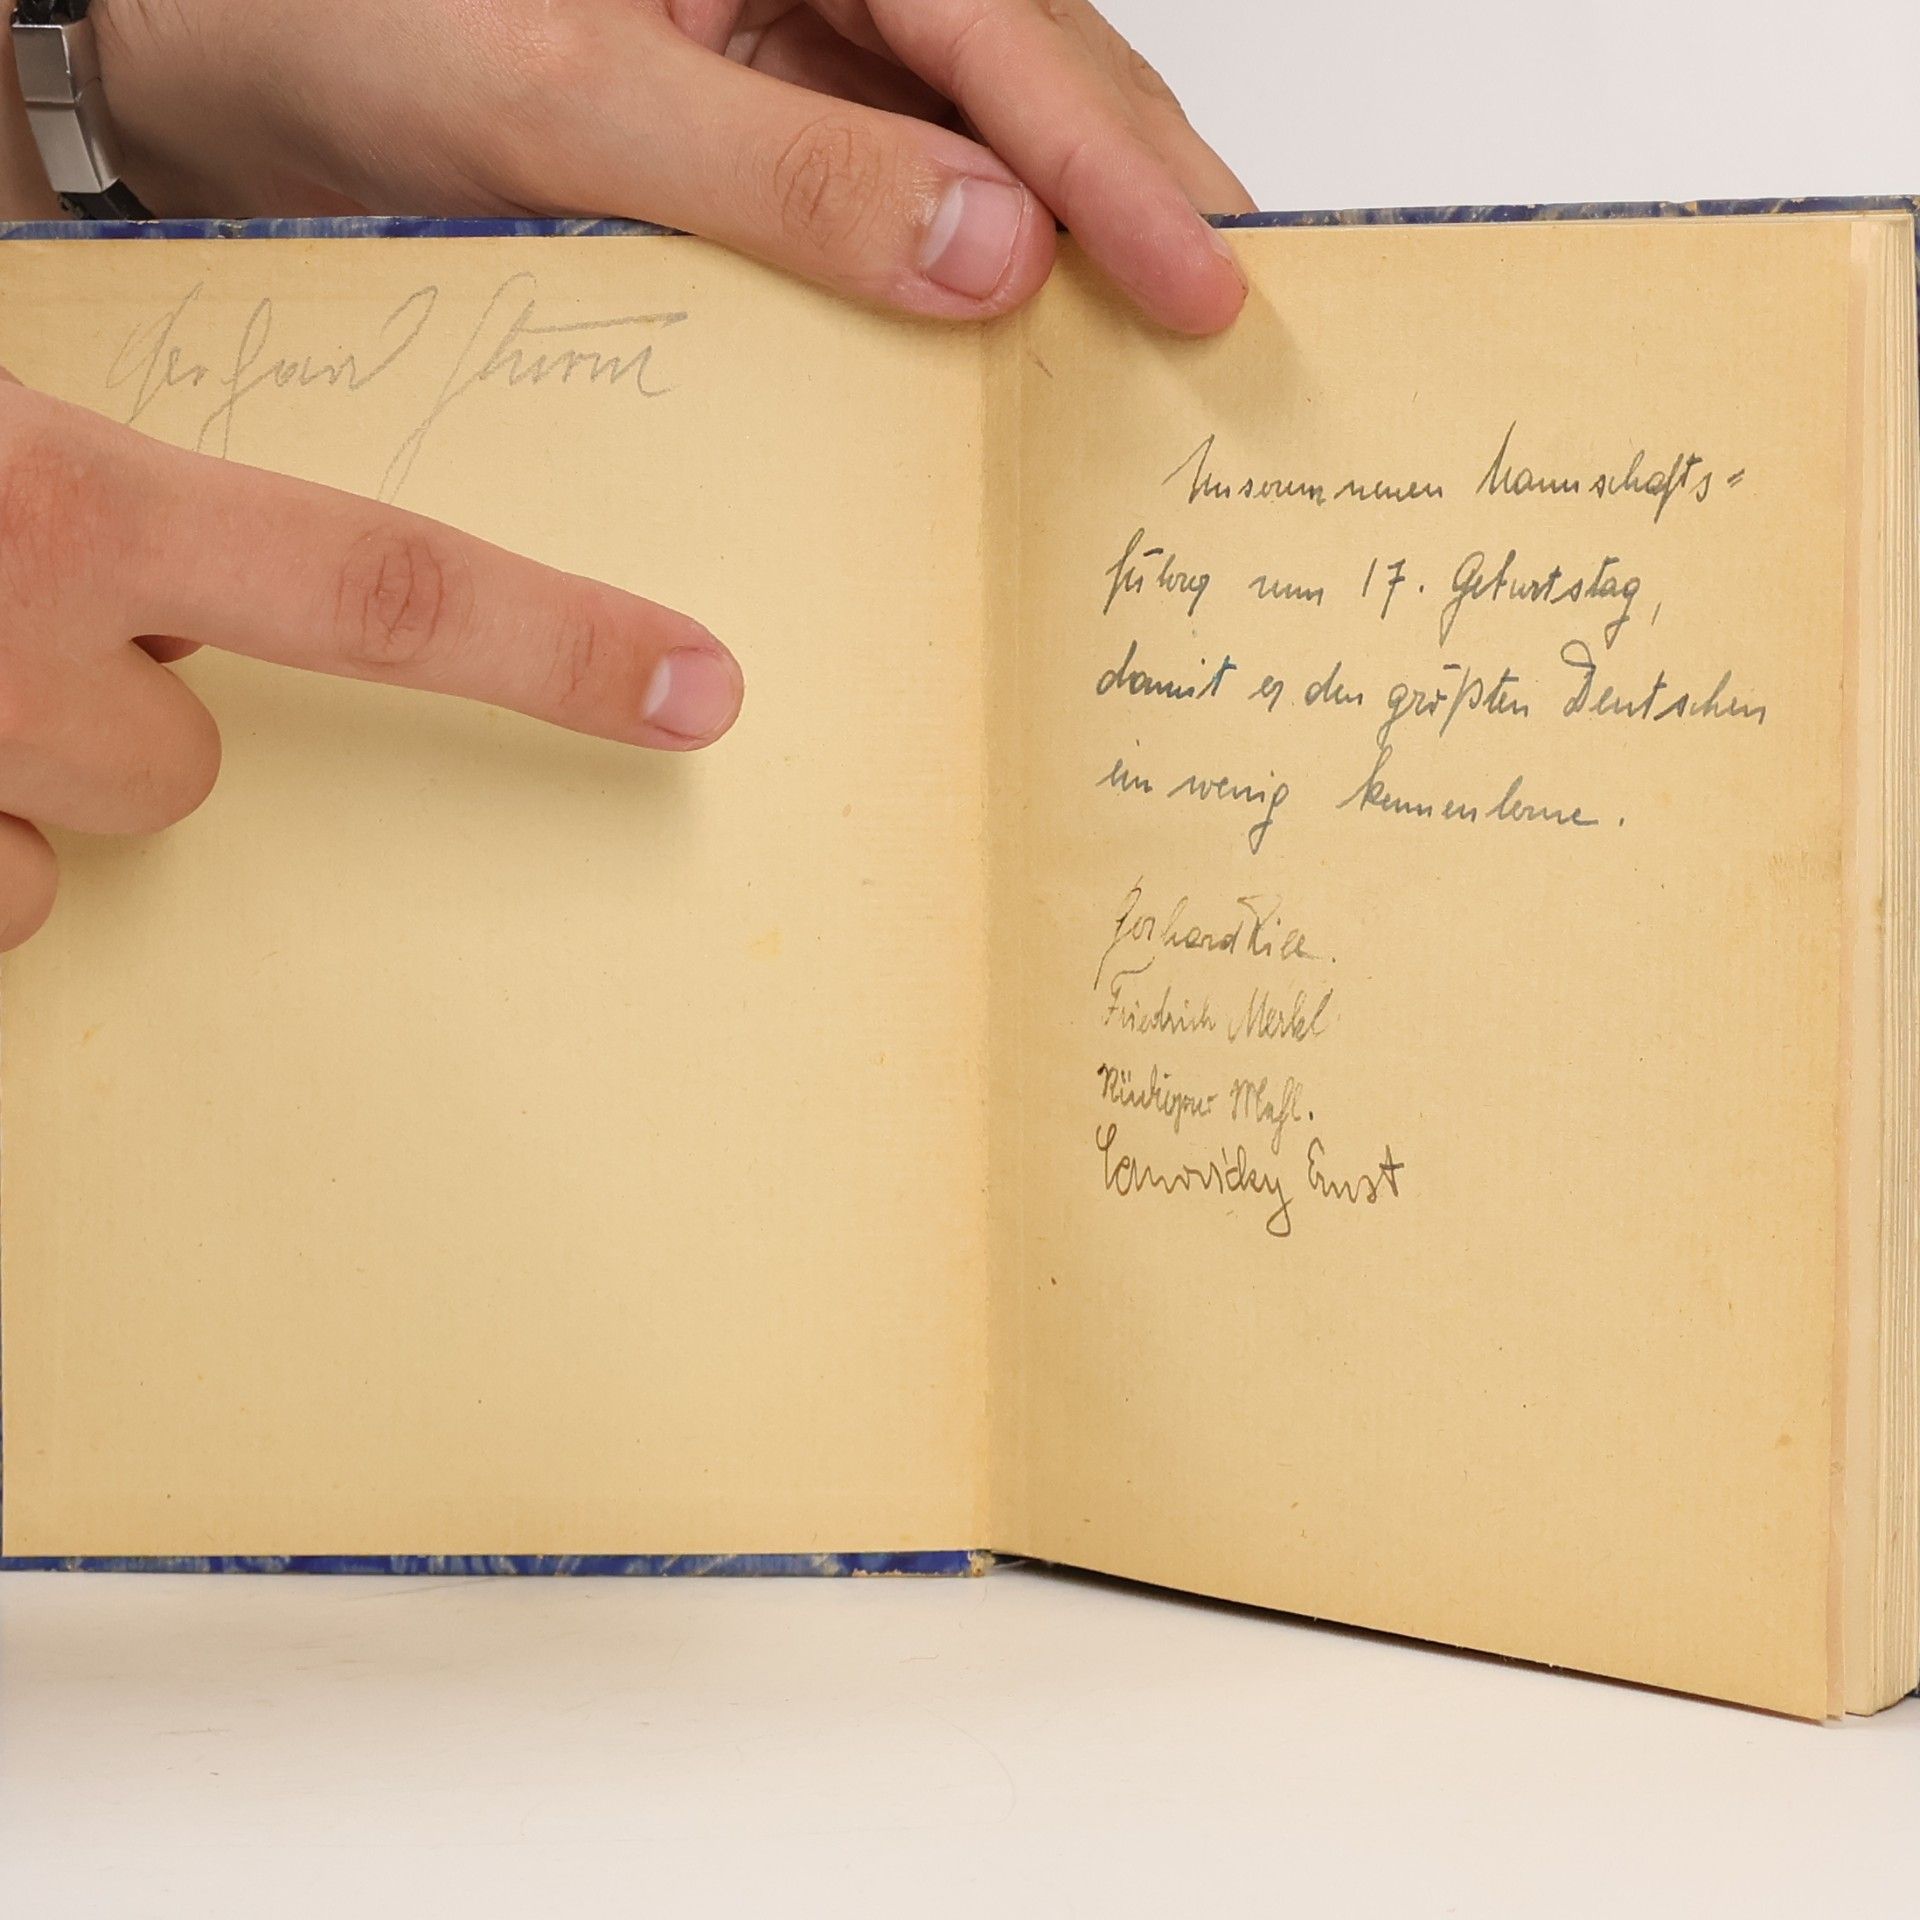 Gerhard Sturm
Unserem neuen Mannschafts=
führer zum 17. Geburtstag,
damit er den größten Deutschen
ein wenig kennenlerne.
Gerhard
Friedrich Merkl
Rüdiger
Ernst